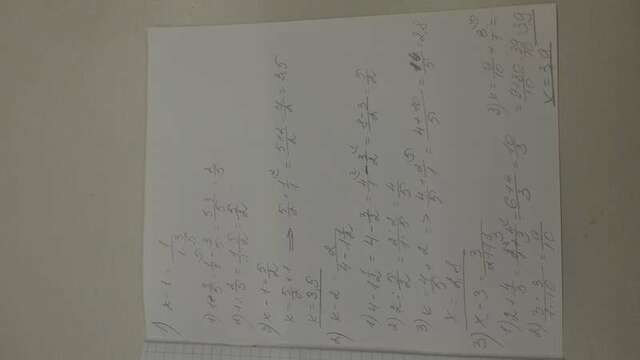 1) x - 1 = 1/(1 - 3/5)
1) 1 - 3/5 = 1/1 - 3/5 = (5-3)/5 = 2/5
2) 1 : 2/5 = 1/1 · 5/2 = 5/2
3) x - 1 = 5/2
x = 5/2 + 1 => 5/2 + 1/1 = (5+2)/2 = 7/2 = 3,5
x = 3,5
2) x - 2 = 2/(4 - 1 1/2)
1) 4 - 1 1/2 = 4 - 3/2 = 4/1 - 3/2 = (8-3)/2 = 5/2
2) 2 : 5/2 = 2·2/1·5 = 4/5
3) x = 4/5 + 2 => 4/5 + 2/1 = (4+10)/5 = 14/5 = 2,8
x = 2,8
3) x - 3 = 3/
1) 2 + 4/3 = 2/1 + 4/3 = (6+4)/3 = 10/3
2) 3·3/1·10 = 9/10
3) x = 9/10 + 3/1 =
= (9+30)/10 = 39/10 = 3,9
x = 3,9